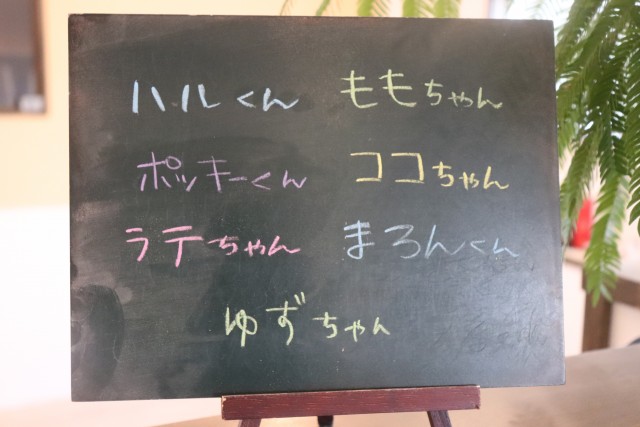 ハルくん ももちゃん
ポッキーくん ココちゃん
ラテちゃん まろんくん
ゆずちゃん